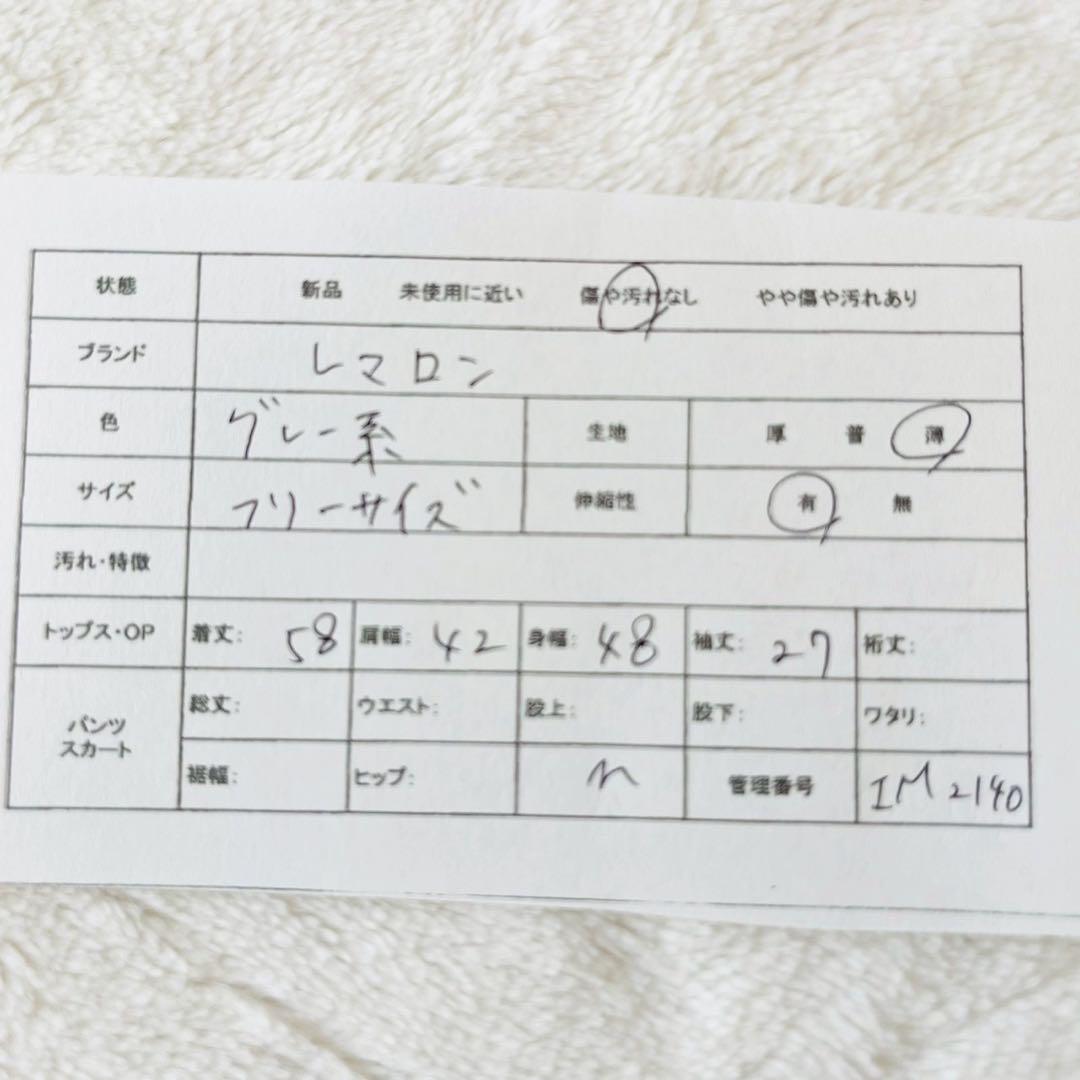 状態 新品 未使用に近い 傷や汚れなし やや傷や汚れあり
ブランド レマロン
色 グレー系 生地 厚 普 薄
サイズ フリーサイズ 伸縮性 有 無
汚れ・特徴
トップス・OP 着丈: 58 肩幅: 42 身幅: 48 袖丈: 27 裄丈:
パンツ
スカート
総丈: ウエスト: 股上: 股下: ワタリ:
裾幅: ヒップ: n 管理番号 IM2140